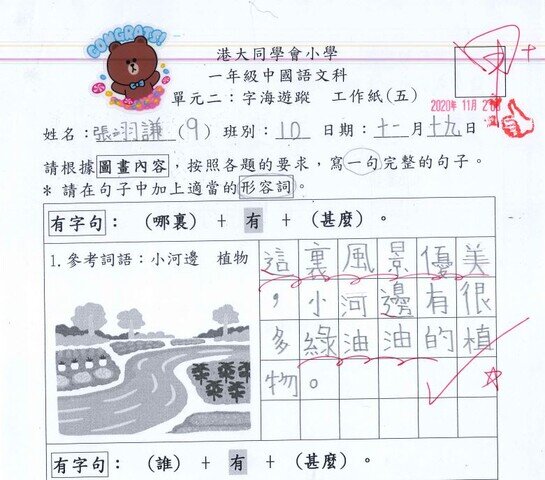 CONGRATS!
港大同學會小學
一年級中國語文科
單元二：字海遊蹤 工作紙(五)
2020年 11月 2
姓名：張翊謙(9) 班別：1D 日期：十一月十九日
請根據圖畫內容，按照各題的要求，寫一句完整的句子。
* 請在句子中加上適當的形容詞。
有字句： (哪裏) + 有 + (甚麼) 。
1. 參考詞語：小河邊 植物
這裏風景優美
，小河邊有很
多綠油油的植
物。
有字句： (誰) + 有 + (甚麼) 。